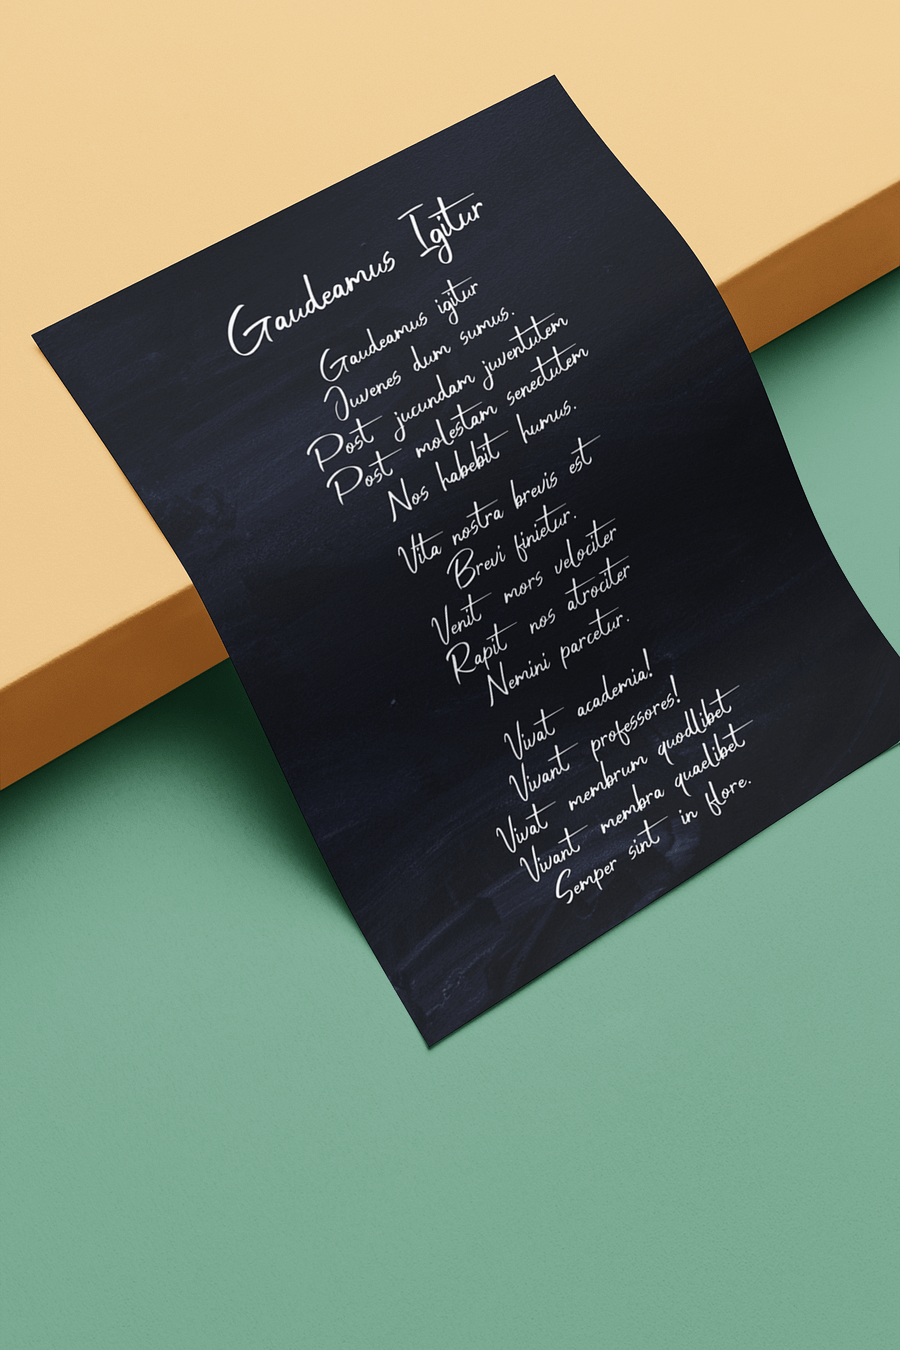 Gaudeamus Igitur
Gaudeamus igitur
Juvenes dum sumus.
Post jucundam juventutem
Post molestam senectutem
Nos habebit humus.
Vita nostra brevis est
Brevi finietur.
Venit mors velociter
Rapit nos atrociter
Nemini parcetur.
Vivat academia!
Vivant professores!
Vivat membrum quodlibet
Vivant membra quaelibet
Semper sint in flore.